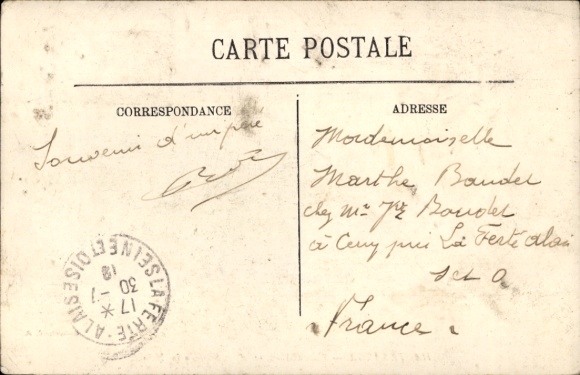 CARTE POSTALE
CORRESPONDANCE
Souvenir d'un père
ADRESSE
Mademoiselle
Marthe Baudet
chez Mr Baudet
à Cerny près La Ferté Alais
S et O
France
LA FERTE-ALAIS
SEINE ET OISE
17 *
30 -1